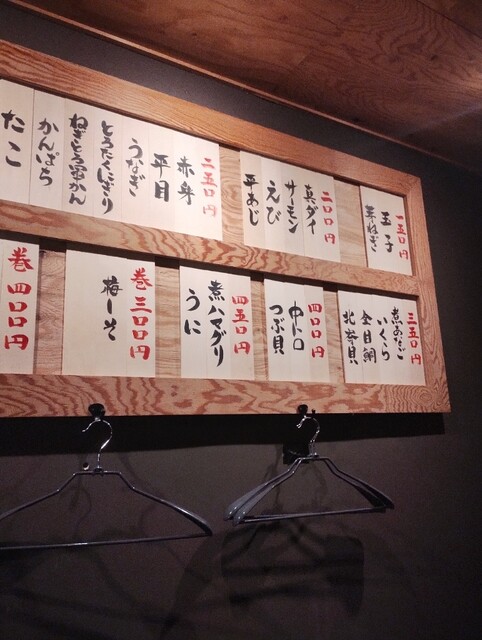 一五〇円
玉子
芽ねぎ
二〇〇円
真ダイ
サーモン
えび
平あじ
二五〇円
赤身
平目
うなぎ
とろたくにぎり
ねぎとろ軍かん
かんぱち
たこ
三五〇円
煮あなご
いくら
金目鯛
北寄貝
四〇〇円
中トロ
つぶ貝
四五〇円
煮ハマグリ
うに
巻 三〇〇円
梅しそ
巻 四〇〇円